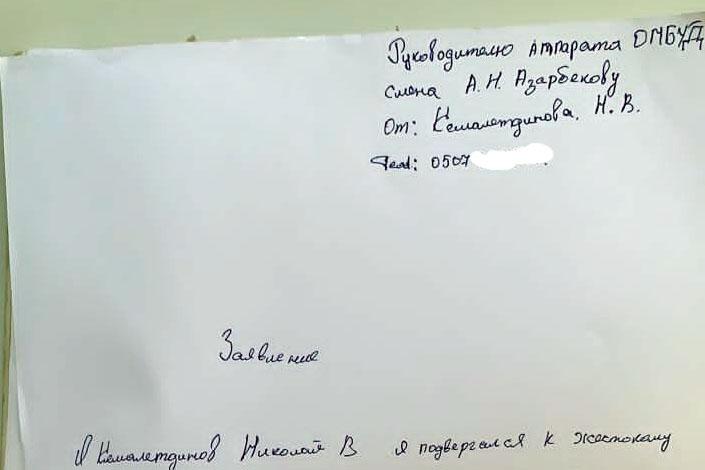 Руководителю Аппарата ОМБУДЦ
смена А.Н. Азарбекову
От: Кемалетдинова. Н.В.
Тел: 0507
Заявление
Я Кемалетдинов Николай В я подвергался к жестокому